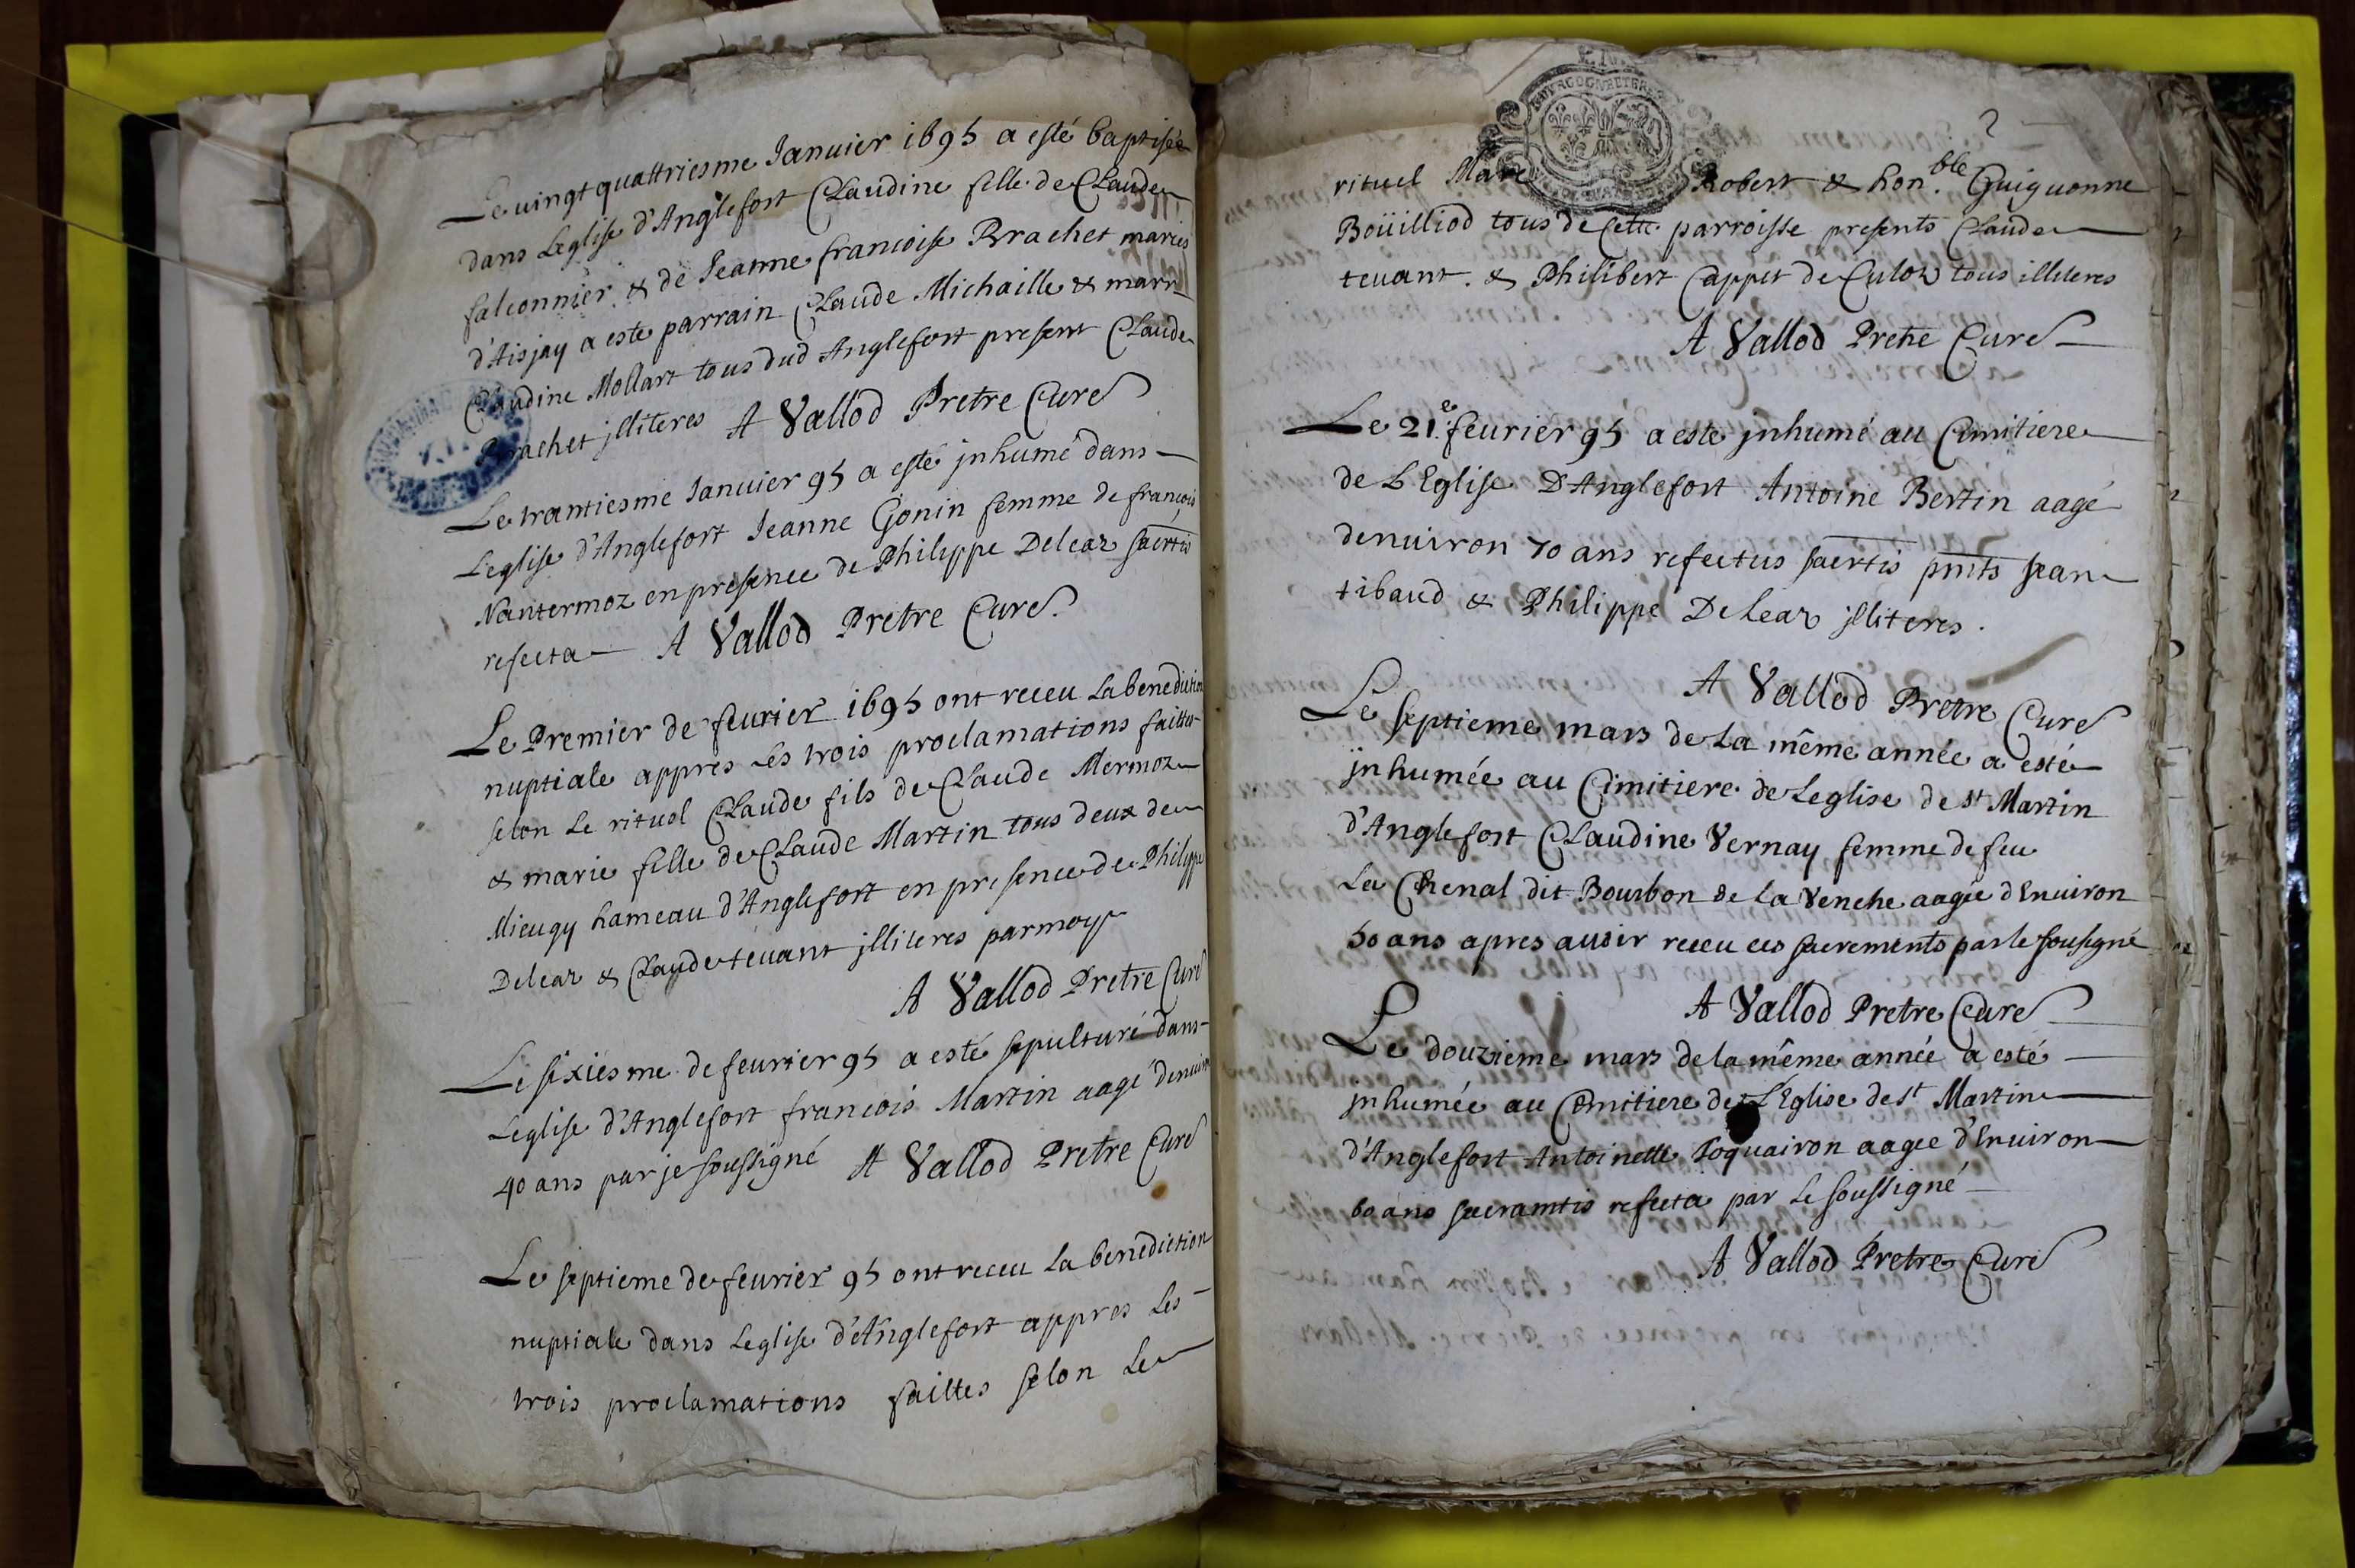 Le vingt quattriesme Janvier 1695 a esté baptisée
dans Leglise d'Anglefort Claudine fille de Claude
falconnier & de Jeanne francoise Brachet maries
d'Aisjay a este parrain Claude Michaille & marr
Claudine Mollart tous dud Anglefort present Claude
Brachet jlliteres A Vallod Pretre Curé
Le trantiesme Janvier 95 a esté jnhumé dans
Leglise d'Anglefort Jeanne Gonin femme de francois
Nantermoz en presence de Philippe Delear sacrtis
refecta A Vallod Pretre Curé
Le Premier de feurier 1695 ont receu La benediction
nuptiale appres Les trois proclamations faittes
selon Le rituel Claude fils de Claude Mermoz
& marie fille de Claude Martin tous deux de
Mieugy hameau d'Anglefort en presence de Philippe
Delear & Claude tévant jlliteres par moy
A Vallod Pretre Curé
Le sixiesme de feurier 95 a esté sepulturé dans
Leglise d'Anglefort francois Martin aagé denuiron
40 ans par je soussigné A Vallod Pretre Curé
Le septieme de feurier 95 ont receu La benediction
nuptiale dans Leglise d'Anglefort appres Les
trois proclamations faittes selon Le
2
rituel Marc Robert & hon.ble Guiguonne
Boüilliod tous de Cette parroisse presents Claude
tevant. & Philibert Cappet de Culoz tous illiteres
A Vallod Pretre Curé
Le 21.e feurier 95 a esté jnhumé au Cimitiere
de L'Eglise D'Anglefort Antoine Bertin aagé
denuiron 70 ans refectus sacrtis pnts Jean
tibaud & Philippe Delear jlliteres.
A Vallod Pretre Curé
Le septieme mars de La même année a esté
jnhumée au Cimitiere de Leglise de st Martin
d'Anglefort Claudine Vernay femme de feu
La Chenal dit Bourbon de La Venche aagée d'Enuiron
50 ans apres avoir receu ces sacrements par le sousigné
A Vallod Pretre Curé
Le douzieme mars de la même année a esté
jnhumée au Cemitiere de L'Eglise de st Martin
d'Anglefort Antoinette Joquairon aagee d'Enuiron
60 ans sacramtis refecta par Le soussigné
A Vallod Pretre Curé